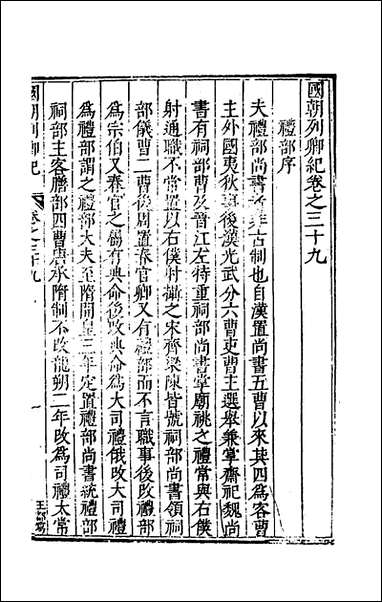 國朝列卿紀卷之三十九
禮部序
夫禮部尚書非古制也自漢置尚書五曹以來其四為客曹
主外國夷狄事後漢光武分六曹吏曹主選舉兼掌齋祀魏尚
書有祠部曹及晉江左特重祠部尚書掌廟祧之禮常與右僕
射通職不常置以右僕射攝之宋齊梁陳皆號祠部尚書領祠
部儀曹二曹後周置春官卿又有禮部而不言職事後改禮部
為宗伯又春官之屬有典命後改典命為大司禮俄改大司禮
為禮部謂之禮部大夫至隋開皇三年定置禮部尚書統禮部
祠部主客膳部四曹唐承隋制不改龍朔二年改為司禮太常
國朝列卿紀
卷之三十九
一